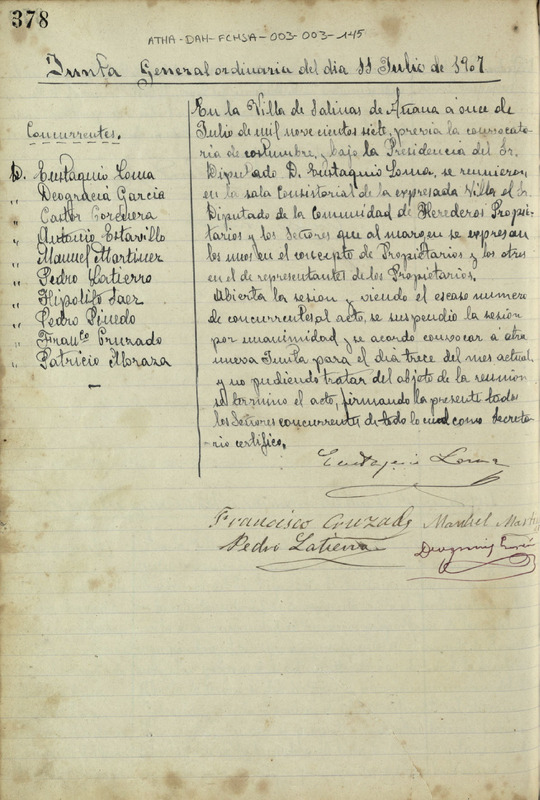 378
ATHA-DAH-FCHSA-003-003-145
Junta General ordinaria del dia 11 Julio de 1907
Concurrentes.
D. Eustaquio Loma
" Deogracia Garcia
" Castor Corcuera
" Antonio Estavillo
" Manuel Martinez
" Pedro Latierro
" Hipolito Saez
" Pedro Pinedo
" Franco Cruzado
" Patricio Moraza
En la Villa de Salinas de Añana á once de
Julio de mil novecientos siete, previa la convocato-
ria de costumbre, bajo la Presidencia del Sr.
Diputado D. Eustaquio Loma, se reunieron
en la sala Consistorial de la expresada Villa el Sr.
Diputado de la Comunidad de Herederos Propie-
tarios y los Señores que al margen se expresan
los unos en el concepto de Propietarios y los otros
en el de representantes de los Propietarios.
Abierta la sesion y viendo el escaso numero
de concurrentes al acto, se suspendio la sesion
por unanimidad y se acordó convocar á otra
nueva Junta para el dia trece del mes actual
y no pudiendo tratar del objeto de la reunion
se termino el acto, firmando la presente todos
los Señores concurrentes de todo lo cual como Secreta-
rio certifico.
Eustaquio Loma
Francisco Cruzado Manuel Martinez
Pedro Latierro